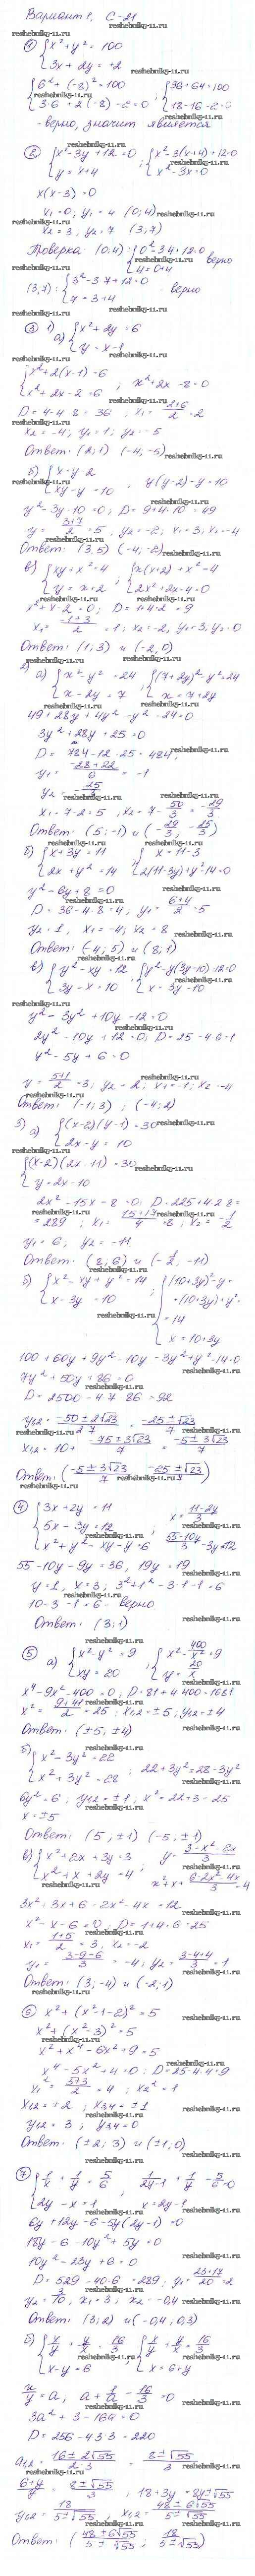 Вариант 1, С-21
① {x²+y² = 100
3x+2y = 2
{6²+(-8)²=100
3·6+2(-8)-2=0 ; {36+64=100
18-16-2=0
- верно, значит является
② {x²-3y+12=0
y = x+4 ; {x²-3(x+4)+12=0
x²-3x=0
x(x-3) = 0
x₁=0; y₁=4 (0;4)
x₂=3, y₂=7 (3;7)
Проверка (0;4): {0²-3·4+12=0
4=0+4 верно
(3;7): {3²-3·7+12=0
7=3+4 - верно
③ 1) а) {x²+2y=6
y=x-1
{x²+2(x-1)=6
x²+2x-2=6 ; x²+2x-8=0
x₂=-4; y₁=1; y₂=-5
Ответ: (2;1) (-4;-5)
б) {x=y-2
xy-y=10 ; y(y-2)-y=10
y²-3y-10=0; D=9+4·10=49
y = (3+7)/2 = 5, y₂=-2; x₁=3; x₂=-4
Ответ: (3;5) (-4;-2)
в) {xy+x²=4
x²+x-2=0; D=1+4·2=9
x₁ = (-1+3)/2 = 1; x₂=-2, y₁=3; y₂=0
Ответ: (1;3) и (-2;0)
2) а) {x²-y²=24
x-2y=7 ; {(7+2y)²-y²=24
x=7+2y
49+28y+4y²-y²-24=0
3y²+28y+25=0
D = 784-12·25=484;
y₁ = (-28+22)/6 = -1
y₂ = -25/3
x₁=7-2=5; x₂=7-50/3=-29/3
Ответ: (5;-1) и (-29/3; -25/3)
б) {x+3y=11
2x+y²=14 {x=11-3y
2(11-3y)+y²-14=0
y²-6y+8=0
Ответ: (-4;5) и (8;1)
в) {y²-xy=12
3y-x=10 ; {y²-y(3y-10)-12=0
x=3y-10
y²-3y²+10y-12=0
y²-5y+6=0
y = (5+1)/2 = 3; y₂=2; x₁=-1; x₂=-4
Ответ: (-1;3) ; (-4;2)
3) а) {(x-2)(y-1)=30
2x-y=10
{(x-2)(2x-11)=30
y=2x-10
2x²-15x-8=0; D=225+4·2·8=
=289 ; x₁ = (15+17)/4 = 8; x₂ = -1/2
y₁=6; y₂=-11
Ответ: (8;6) и (-1/2; -11)
б) {x²-xy+y²=14
x-3y=10
x=10+3y
7y²+50y+86=0
D=2500-4·7·86=92
y₁,₂ = (-50±2√23)/(2·7) = (-25±√23)/7
x₁,₂ = 10+(-75±3√23)/7 = (-5±3√23)/7
Ответ: ((-5±3√23)/7 ; (-25±√23)/7)
④ {3x+2y=11
5x-3y=12
x²+y²-xy-y=6 ; x=(11-2y)/3
55-10y-9y=36, 19y=19
y=1, x=3; 3²+1²-3·1-1=6
10-3-1=6 - верно
Ответ: (3;1)
⑤ а) {x²-y²=9
xy=20 ; {x²-400/x²=9
y=20/x
x⁴-9x²-400=0; D=81+4·400=1681
x² = (9+41)/2 = 25; x₁,₂=±5; y₁,₂=±4
Ответ: (±5; ±4)
б) {x²-3y²=22
x²+3y²=28 ; 22+3y²=28-3y²
6y²=6; y₁,₂=±1; x²=22+3=25
x=±5
Ответ: (5;±1) (-5;±1)
в) {x²+2x+3y=3
x²+x+2y=4 ; y=(3-x²-2x)/3
3x²+3x+6-2x²-4x=12
x²-x-6=0; D=1+4·6=25
x₁ = (1+5)/2 = 3; x₂=-2
y₁ = (3-9-6)/3 = -4; y₂ = (3-4+4)/3 = 1
Ответ: (3;-4) и (-2;1)
⑥ x²+(x²-1-2)²=5
x²+(x²-3)²=5
x²+x⁴-6x²+9=5
x⁴-5x²+4=0; D=25-4·4=9
x₁² = (5+3)/2 = 4; x₂²=1
x₁,₂=±2; x₃,₄=±1
y₁,₂=3; y₃,₄=0
Ответ: (±2;3) и (±1;0)
⑦ {1/x+1/y=5/6
2y-x=1 ; 1/(2y-1)+1/y-5/6=0
x=2y-1
6y+12y-6-5y(2y-1)=0
18y-6-10y²+5y=0
10y²-23y+6=0
D=529-40·6=289; y₁=(23+17)/20=2
y₂=3/10; x₁=3; x₂=-0,4
Ответ: (3;2) и (-0,4; 0,3)
б) {x/y+y/x=16/3
x-y=6 ; {x/y+y/x=16/3
x=6+y
x/y=a, a+1/a-16/3=0
3a²+3-16a=0
D=256-4·3·3=220
a₁,₂ = (16±2√55)/(2·3) = (8±√55)/3
(6+y)/y = (8±√55)/3 ; 18+3y=8y±√55
y₁,₂ = 18/(5±√55) ; x₁,₂ = (48±6√55)/(5±√55)
Ответ: ((48±6√55)/(5±√55) ; 18/(5±√55))